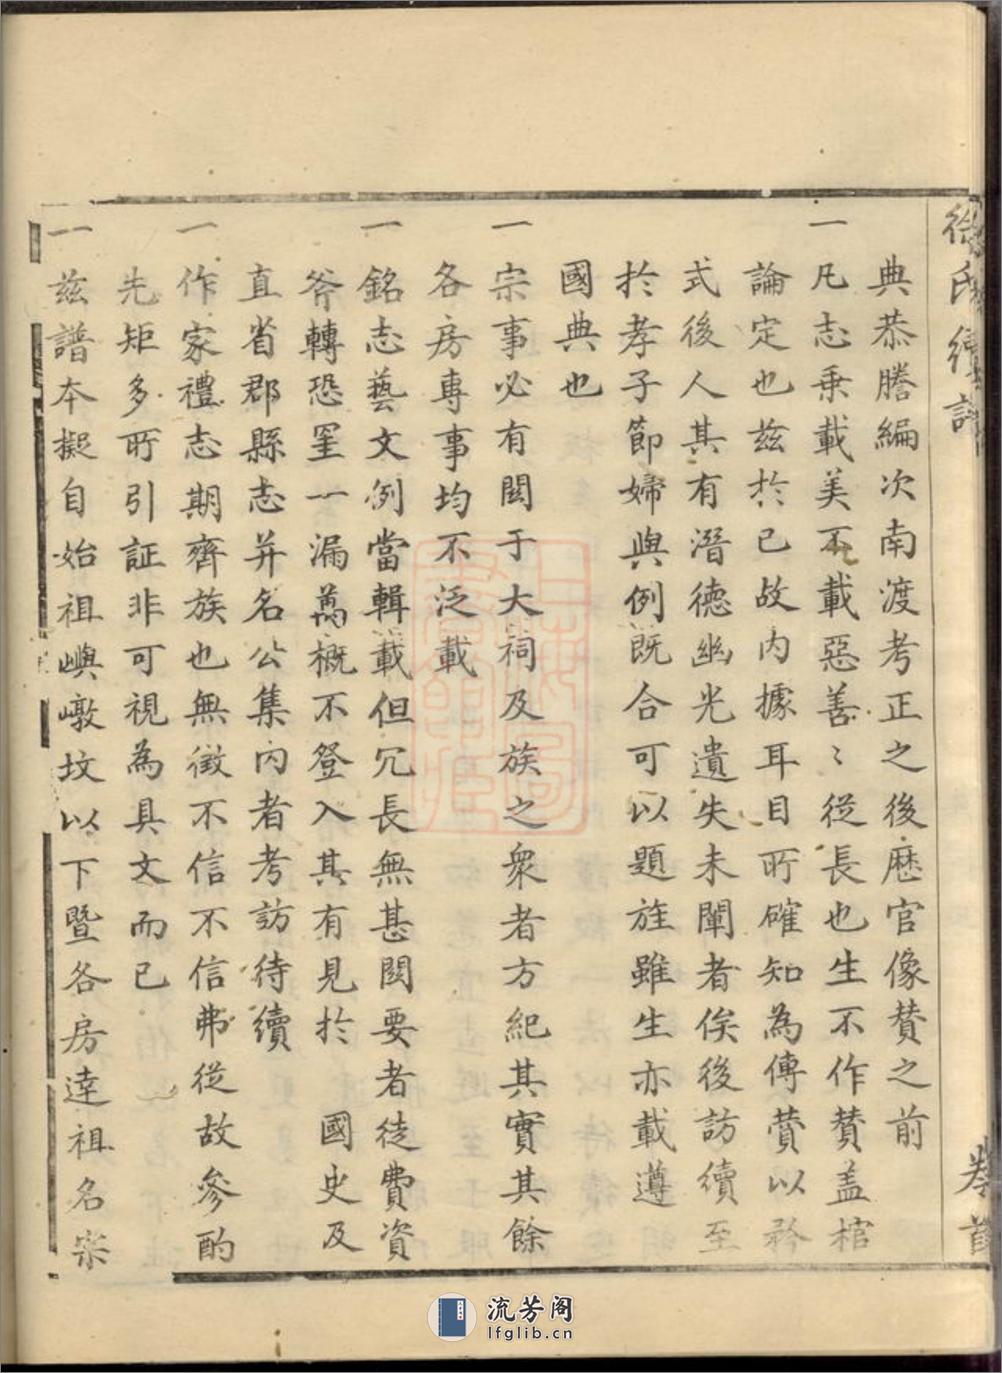 徐氏續譜
卷首
典恭謄編次南渡考正之後歷官像贊之前
一凡志乗載美不載惡善〻從長也生不作贊盖棺
論定也茲於已故內據耳目所確知為傳贊以矜
式後人其有潛德幽光遺失未闡者俟後訪續至
於孝子節婦與例既合可以題旌雖生亦載遵
國典也
一宗事必有関于大祠及族之衆者方紀其實其餘
各房專事均不泛載
一銘志藝文例當輯載但冗長無甚関要者徒費資
斧轉恐罣一漏萬概不登入其有見於 國史及
直省郡縣志并名公集內者考訪待續
一作家禮志期齊族也無徵不信不信弗從故參酌
先矩多所引証非可視為具文而已
一茲譜本擬自始祖嶼墩坟以下暨各房逹祖名宗
流芳阁
lfglib.cn